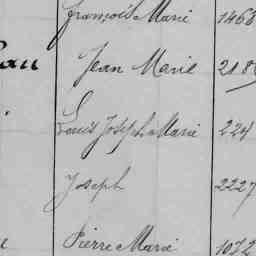 François Marie 1468
Jean Marie 218
Louis Joseph Marie 224
Joseph 2227
Pierre Marie 1072